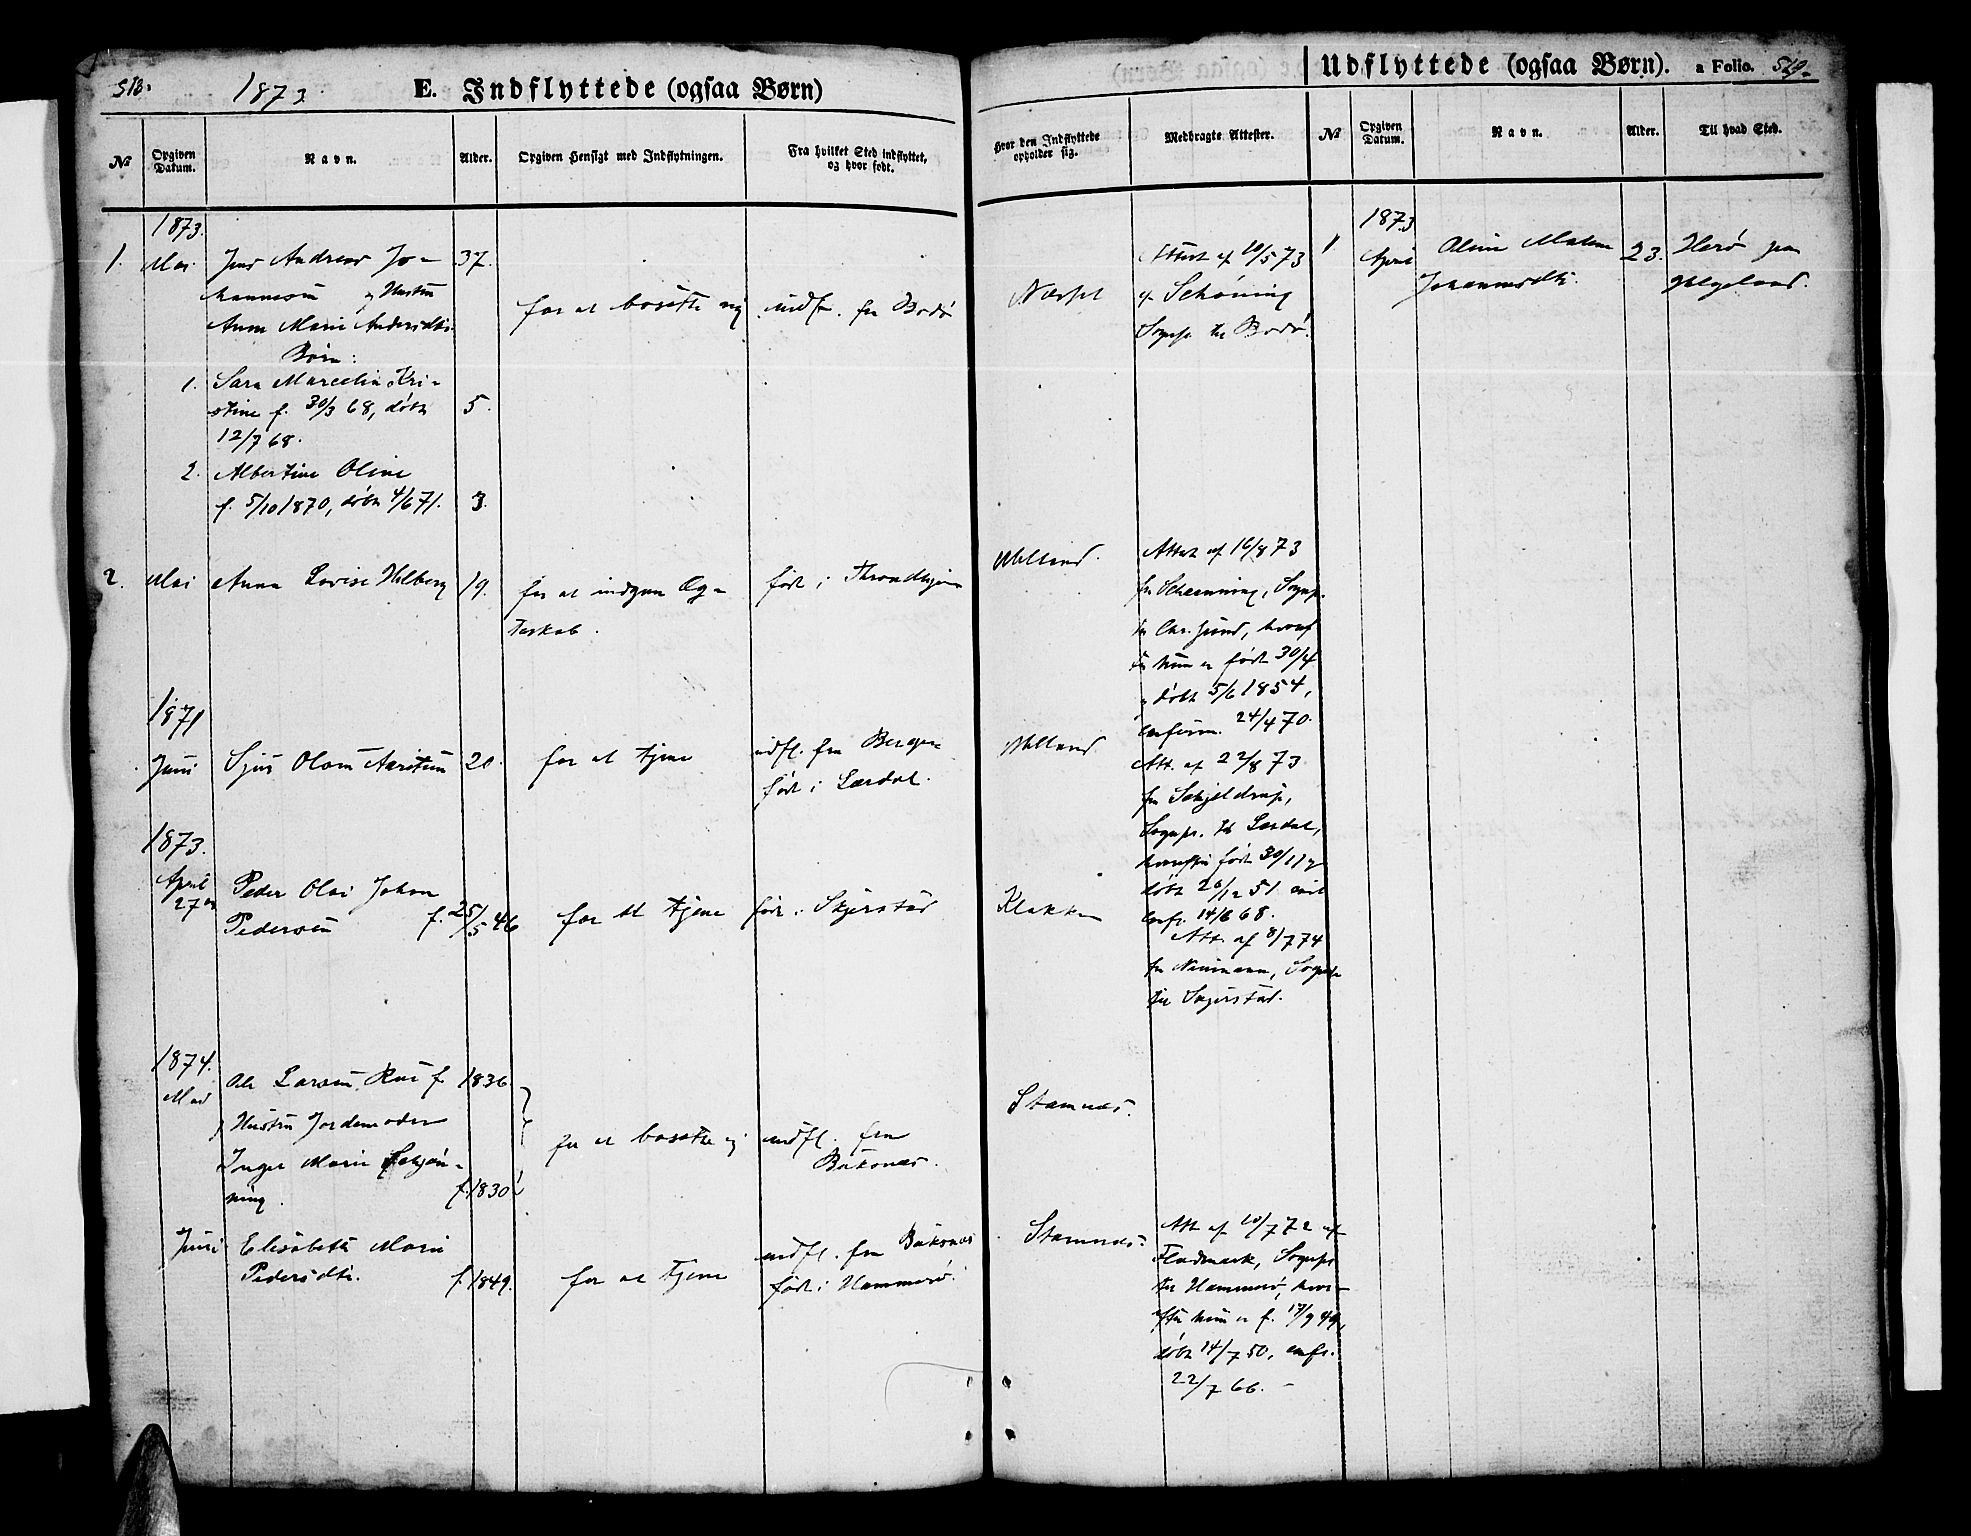 518.
1873.
E. Indflyttede (ogsaa Børn)
Udflyttede (ogsaa Børn).
a Folio. 519.
No
Opgiven Datum.
Navn.
Alder.
Opgiven Hensigt med Indflytningen.
Fra hvilket Sted indflyttet,
og hvor født.
Hvor den Indflyttede
opholder sig.
Medbragte Attester.
No
Opgiven Datum.
Navn.
Alder.
Til hvad Sted.
1873.
1. Mai. Jens Andreas Jo- 37.
hannesen og Hustru
Anna Marie Andersdtr.
Børn:
1. Sara Marcelia Kri-
stine f. 30/3 68, døbt 5.
12/7 68.
2. Albertine Oline
f. 5/10 1870, døbt 4/6 71. 3.
for at bosætte sig
indfl. fra Bodø
Attest af 10/5 73
af Schøning
Sognepr. til Bodø.
2. Mai Anna Lovise Holberg 19.
for at indgaa Æg-
teskab.
født i Throndhjem
Melland.
Attest af 16/8 73
fra Sognepr.
til Chr.sund, hvoref-
ter hun er født 30/4
døbt 5/6 1854,
confirm. 24/4 70.
1871
Juni Sjur Olsen 20.
for at tjene
indfl. fra Bergen
født i Lærdal.
Melland
Att. af 22/8 73
fra Schjeldrup,
Sognepr. til Lærdal,
hvorefter født 30/11
døbt 26/12 51
confr. 14/6 68.
1873.
April 27de Peder Olai Johan
Pedersen f. 25/5 46
for at tjene
født i Skjerstad
Klakken
Att. af 8/7 74
fra Sognepr.
til Skjerstad.
1874.
Mai Ole Larsen f. 1836.
Hustru Jordemoder
Inger Marie Schjøn-
ning. f. 1830
for at bosætte sig
indfl. fra
Buksnæs.
Stamnæs.
Juni Elisabeth Marie
Pedersdtr. f. 1849.
for at tjene
indfl. fra Buksnæs
født i Hammerø.
Stamnæs.
Att. af 10/7 72 af
Fladmark, Sognepr.
til Hammerø, hvor-
efter hun er f. 17/9 49,
døbt 14/7 50, confr.
22/7 66. -
1873
1 April Oline
Johannesdtr. 23.
Herø paa
Helgeland.